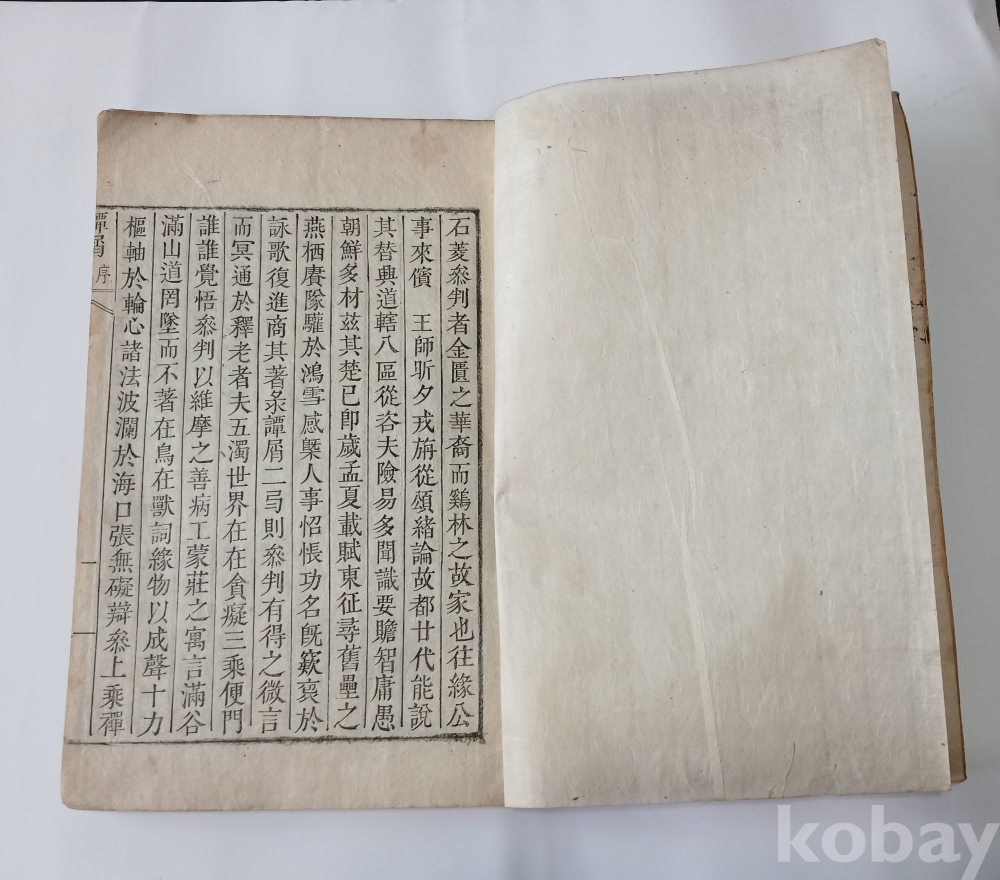 石菱叅判者金匱之華裔而鷄林之故家也往緣公
事來儐 王師昕夕戎旃從頌緒論故都廿代能說
其替興道轄八區從咨夫險易多聞識要贍智庸愚
朝鮮多材茲其楚已卽歲孟夏載賦東征尋舊壘之
燕栖賡隊驩於鴻雪感槩人事怊悵功名旣歎裒於
詠歌復進商其著彔譚屑二弓則叅判有得之微言
而冥通於釋老者夫五濁世界在在貪癡三乘便門
誰誰覺悟叅判以維摩之善病工蒙莊之寓言滿谷
滿山道罔墜而不著在鳥在獸詞緣物以成聲十力
樞軸於輪心諸法波瀾於海口張無礙辯叅上乘禪
譚屑 序
kobay